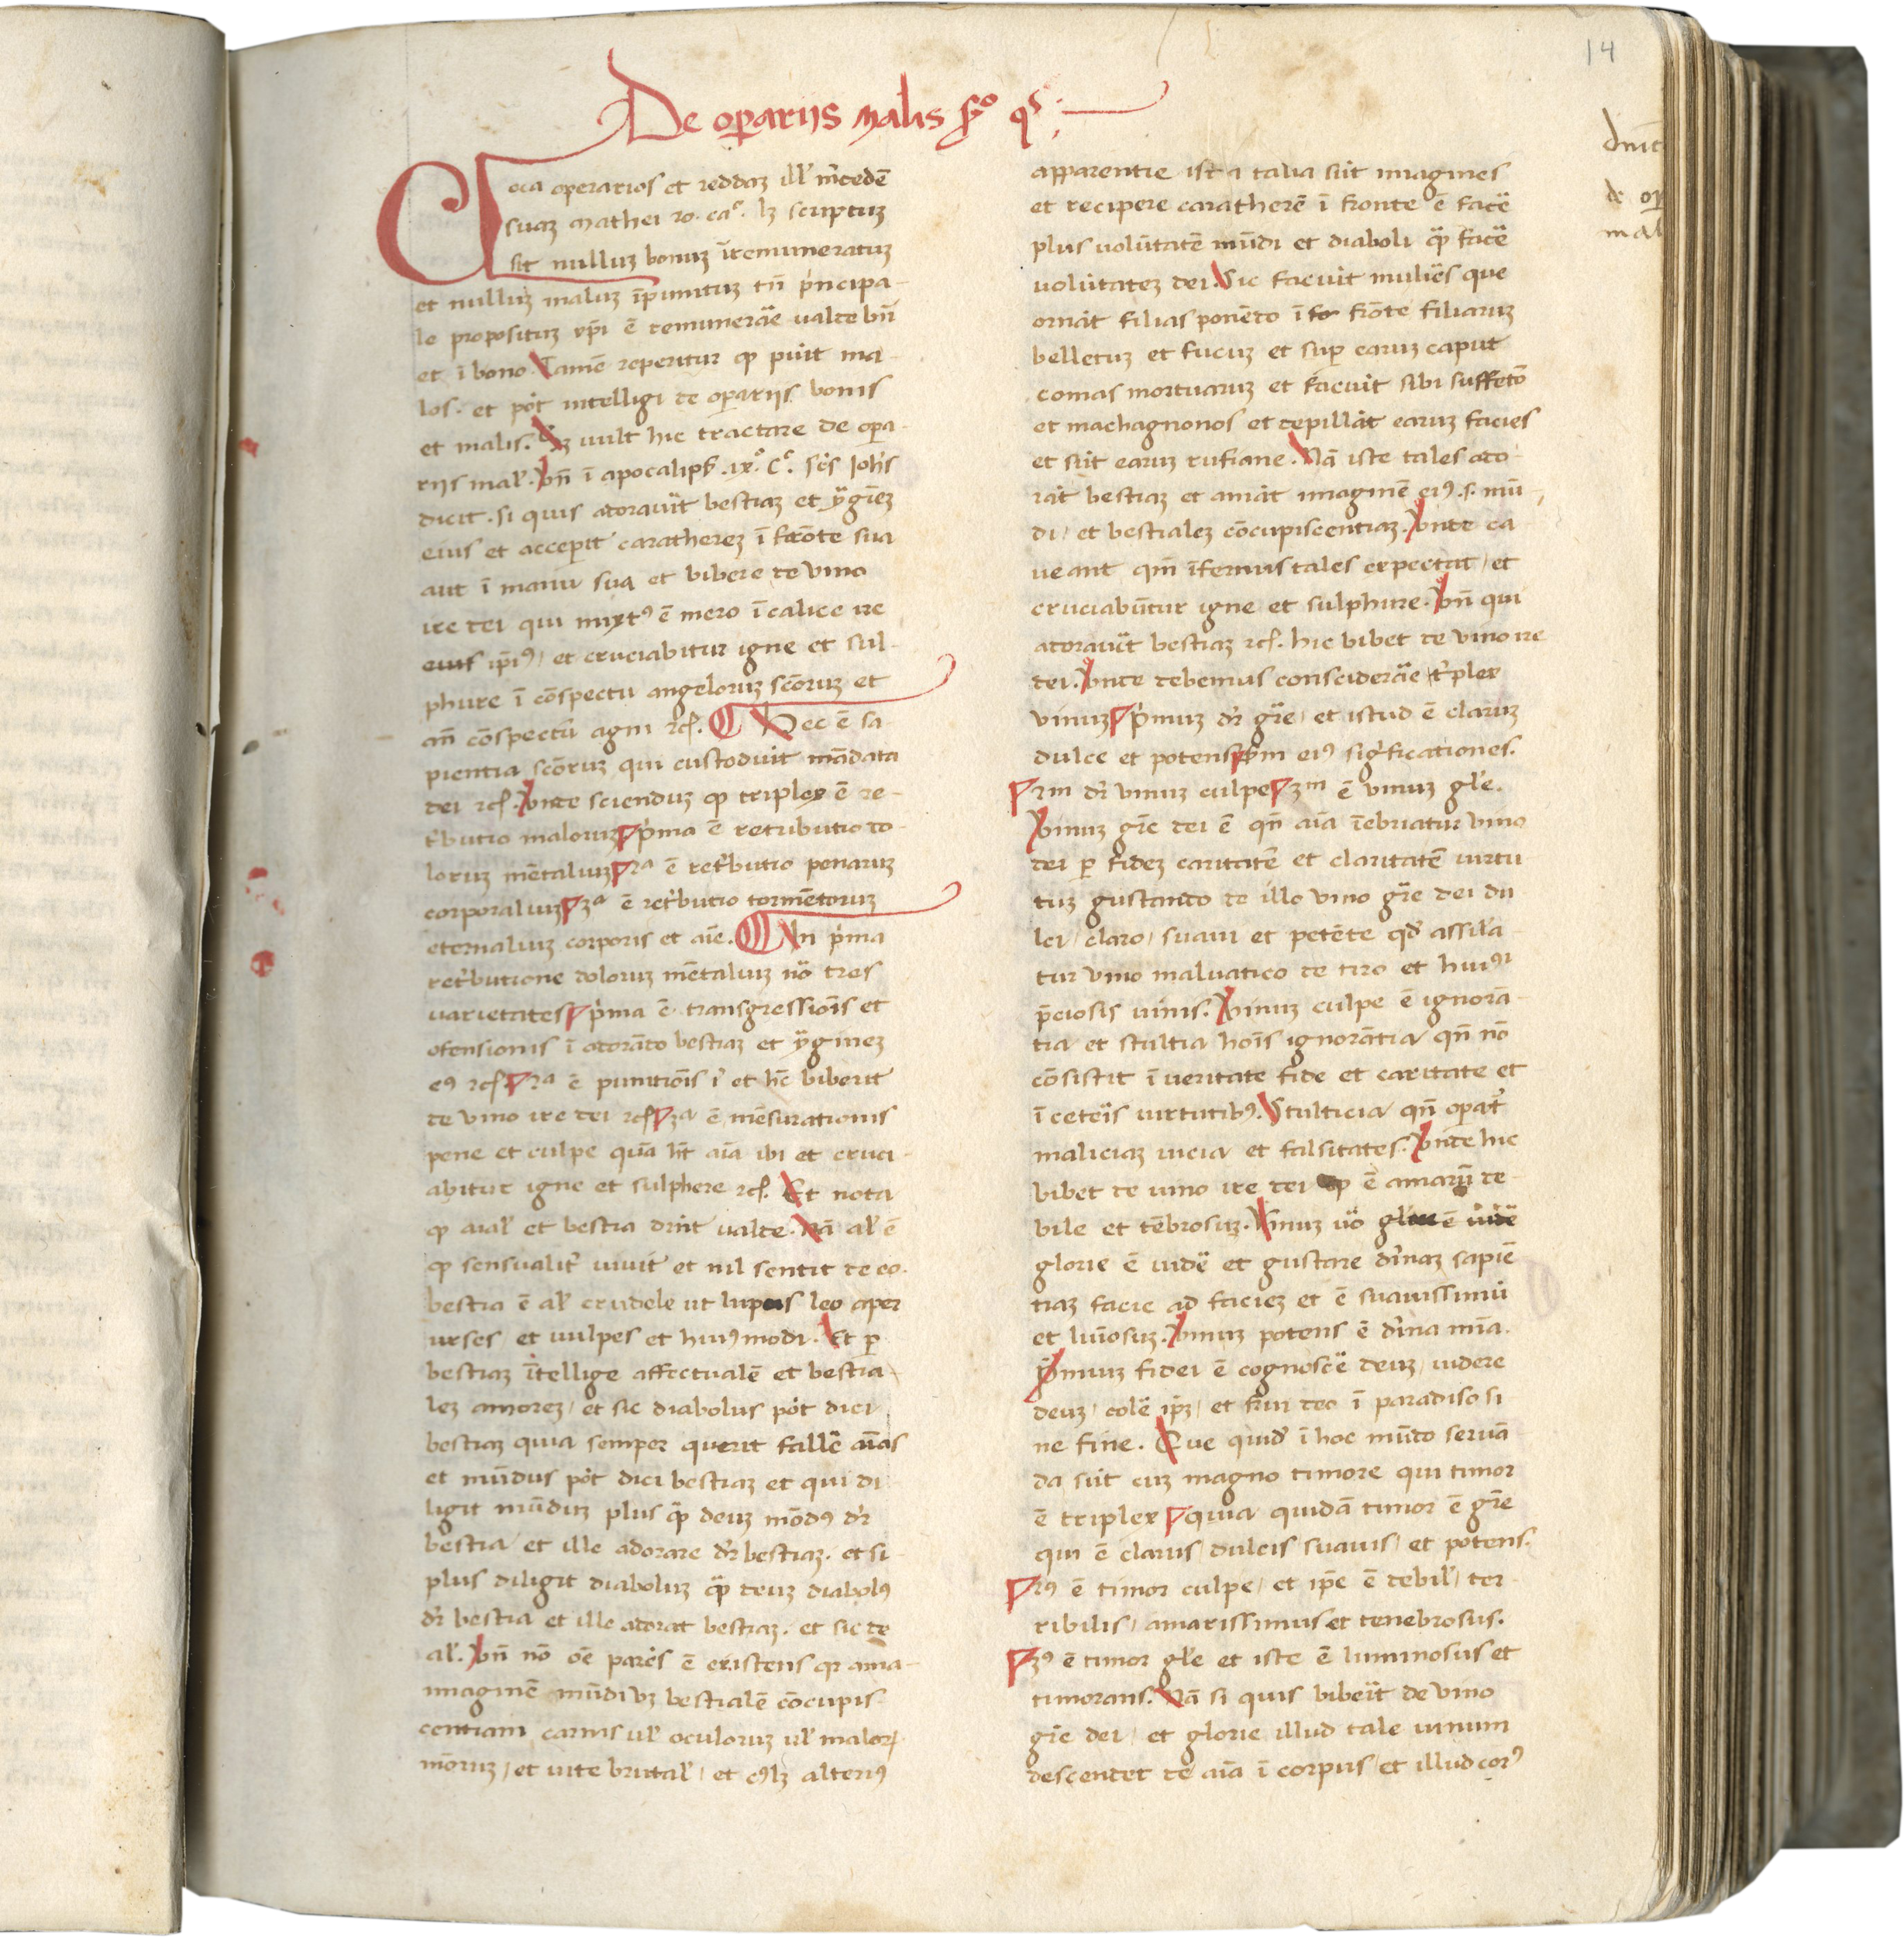 14
De operarijs malis sꝛo qͬ.
Coca operarios et reddaꝫ ill' m̓cedē
suaꝫ mathei 20. caº. lꝫ scriptuꝫ
sit nulluꝫ bonuꝫ īremuneratuꝫ
et nulluꝫ maluꝫ īpunituꝫ tn̄ p̓ncipa-
le propositum xp̄i ē remunerāe ualde bn̄
et ī bono. Tamē reperitur ꝙ puīt ma-
los. et pōt intelligi de operarijs bonis
et malis. Sꝫ uult hic tractare de opa-
rijs mal'. Vn̄ ī apocalips̄ .ix.º cº. sc̄s Joh̄s
dicit. si quis adorauīt bestiaꝫ et ẏgīeꝫ
eius et acceperit caratherez ī fronte sua
aut ī manu sua et bibere de vino
ire dei qui mixtꝰ ē mero ī calice ire
eius ip̄iꝰ / et cruciabitur igne et sul-
phure ī cōspectu angelorum scōruꝫ et
an̄ cōspectū agni ⁊cꝭ. Hec ē sa-
pientia scōruꝫ qui custodiūt mādata
dei ⁊cꝭ. Vnde sciendum ꝙ triplex ē re-
t̓butio maloruꝫ p̓ma ē retributio do-
loruꝫ mētaliuꝫ 2ª ē ret̓butio penaruꝫ
corporaliuꝫ 3ª ē ret̓butio tormētoruꝫ
eternaliuꝫ corporis et aīe. In p̓ma
ret̓butione doloruꝫ mētaliuꝫ nō tres
varietates p̓ma ē transgressiōis et
ofensionis ī adorādo bestiaꝫ et ẏgineꝫ
eꝰ ⁊cꝭ 2ª ē punitiōis ī et hc̄ biberit
de vino ire dei ⁊cꝭ 3ª ē mēsurationis
pene et culpe quā ht̄ aīa ibi et cruci-
abitur igne et sulphere ⁊cꝭ. Et nota
ꝙ aial' et bestia drīt ualde. Nā al' ē
ꝙ sensualit̓ uiuit et nil sentit de eo.
bestia ē al' crudele ut lupus leo aper
urses et uulpes et huiꝰmodi. Et p
bestiaꝫ ītellige affectualē et bestia-
leꝫ amoreꝫ / et sic diabolus pōt dici
bestiaꝫ quia semper querit fallē aīas
et mūdus pōt dici bestiaꝫ et qui di-
ligit mūduꝫ plus q̄ꝫ deuꝫ mōdꝰ dr̄
bestia et ille adorare dr̄ bestiaꝫ. et si
plus diligit diaboluꝫ q̄ꝫ deuꝫ diabolꝰ
dr̄ bestia et ille adorat bestiaꝫ. et sic de
al'. Vn̄ nō ōe parēs ē existens qr ama-
imaginē mūdi vꝫ bestialē cōcupis-
centiam carnis ul' oculoruꝫ ul' malorꝭ
mōruꝫ / et uite brutal' / et cꝰlꝫ alteriꝰ
apparentie ist⁊ talia sūt imagines
et recipere caratherē ī fronte ē facē
plus uolūtatē mūdi et diaboli q̄ꝫ facē
uolūtateꝫ dei. Sic faciūt muliēs que
ornāt filias ponēdo ī frōte filiaruꝫ
belletuꝫ et fucuꝫ et sup earuꝫ caput
comas mortuaruꝫ et faciūt sibi suffetō
et machagnonos et depillāt earuꝫ facies
et sūt earuꝫ rufiane. Nā iste tales ado-
rāt bestiaꝫ et amāt imaginē eiꝰ .s. mū-
di / et bestialeꝫ cōcupiscentiaꝫ. Vnde ca
ueant qm̄ īfernus tales expectat / et
cruciabūtur igne et sulphure. Vn̄ qui
adorauīt bestiaꝫ ⁊cꝭ. hic bibet de vino ire
dei. Vnde debemus consciderāe t̓plex
vinuꝫ p̓muꝫ dr̄ gr̄e / et istud ē claruꝫ
dulce et potens sm̄ eiꝰ sig̓ficationes.
2m dr̄ vinuꝫ culpe 3m ē vinuꝫ gl'e.
Vinuꝫ gr̄e dei ē qn̄ aīa īebriatur vino
dei p fideꝫ caritatē et claritatē uirtu
tuꝫ gustando de illo vino gr̄e dei du
lci / claro / suaui et petēte qd̄ assil'a
tur vino maluatico de tiro et huiꝰī
p̄ciosis uinis. Vinuꝫ culpe ē ignorā-
tia et stultia hoīs ignorātia qn̄ nō
cōsistit ī ueritate fide et caritate et
ī ceteīs uirtutibꝰ. Stulticia qn̄ opat̓
maliciaꝫ uicia et falsitates. Vnde hic
bibet de uino ire dei ꝙ ē amarū de-
bile et tēbrosuꝫ. Vinuꝫ uō gl'ie ē uidē
glorie ē uidē et gustare diuinaꝫ sapiē
tiaꝫ facie ad facieꝫ et ē suauissimū
et luīosuꝫ. Vinuꝫ potens ē diuina mīa.
p̓muꝫ fidei ē cognoscē deuꝫ / uidere
deuꝫ / colē ip̄ꝫ / et frui deo ī paradiso si
ne fine. Que quid̄ ī hoc mūdo seruā
da sūt cuꝫ magno timore qui timor
ē triplex quia quidā timor ē gr̄e
qui ē clarus / dulcis suauis / et potens.
2ꝰ ē timor culpe / et ip̄e ē debil' / ter-
ribilis / amarissimus et tenebrosus.
3ꝰ ē timor gl'e et iste ē luminosus et
timorans. Nā si quis bibeīt de vino
gr̄e dei / et glorie illud tale uinum
descendet de aīa ī corpus / et illud corꝰ